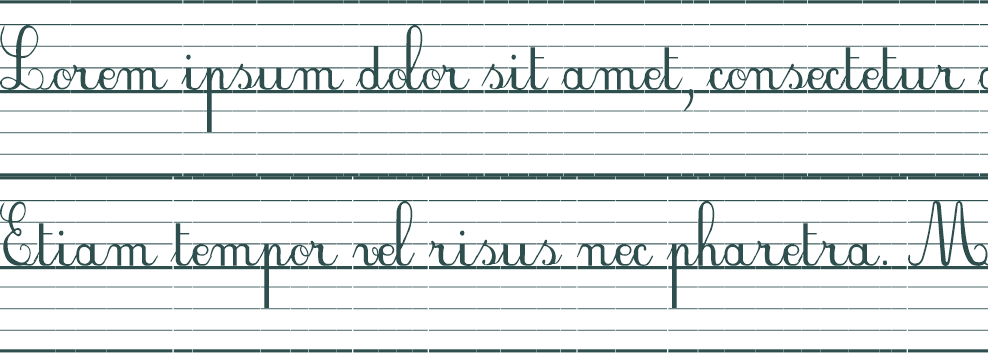 Lorem ipsum dolor sit amet, consectetur
Etiam tempor vel risus nec pharetra. M